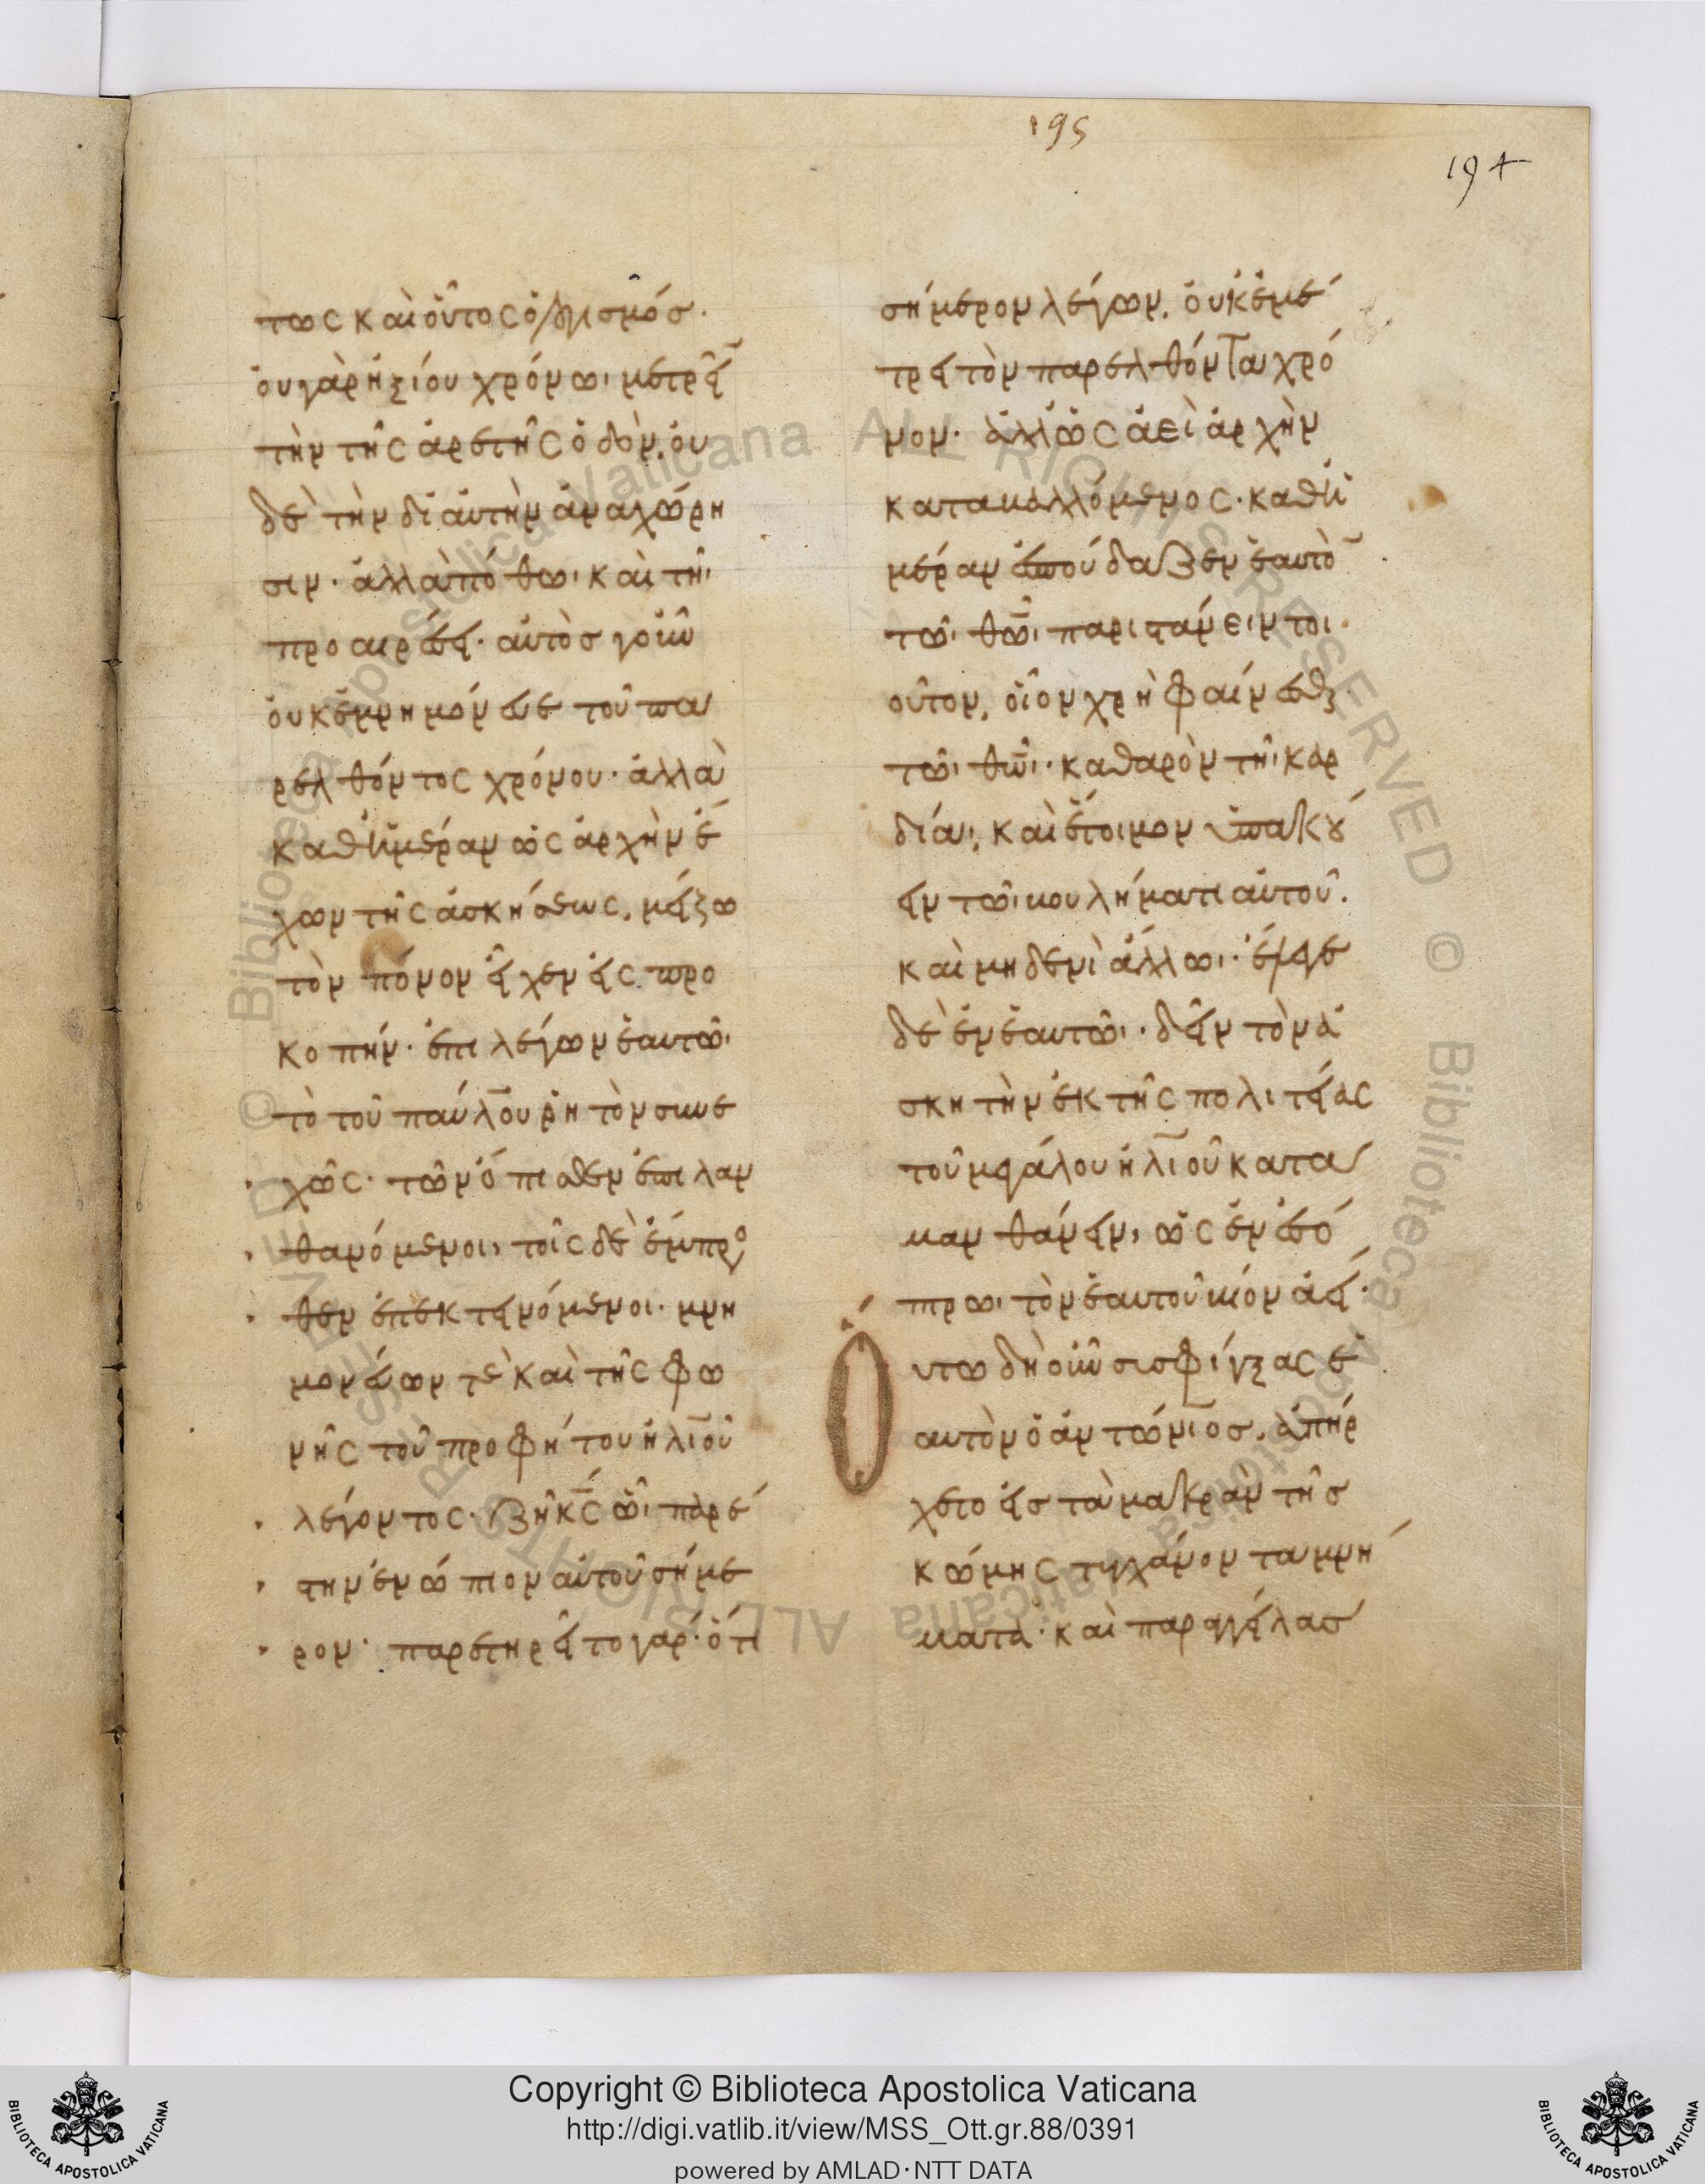 195
194
τως καὶ οὗτος ὁ λογισμός·
οὐ γὰρ ἠξίου χρόνωι μετρεῖ
τὴν τῆς ἀρετῆς ὁδὸν, οὐ
δὲ τὴν δι' αὐτὴν ἀναχώρη
σιν· ἀλλὰ πόθωι καὶ τῆι
προαιρέσει· αὐτὸς γοῦν
οὐκ ἐμνημόνευε τοῦ πα
ρελθόντος χρόνου· ἀλλὰ
καθημέραν ὡς ἀρχὴν ἔ
χων τῆς ἀσκήσεως, μείζω
τὸν πόνον εἶχεν εἰς προ
κοπήν· ἐπιλέγων ἑαυτῶι
τὸ τοῦ παύλου ῥητὸν συνε
χῶς· τῶν ὄπισθεν ἐπιλαν
θανόμενοι, τοῖς δὲ ἔμπρο
θεν ἐπεκτεινόμενοι· μνη
μονεύων τὲ καὶ τῆς φω
νῆς τοῦ προφήτου ἠλιοῦ
λέγοντος· ζῆ κς ὧι παρέ
στην ἐνώπιον αὐτοῦ σήμε
ρον· παρετηρεῖτο γάρ· ὅτι
σήμερον λέγων, οὐκ ἐμέ
τρει τὸν παρελθόντα χρό
νον· ἀλλ' ὡς ἀεὶ ἀρχὴν
καταβαλλόμενος· καθη
μέραν ἐσπούδαζεν ἑαυτὸ
τῶι θῶι παριστάνειν τοι
οῦτον, οἷον χρὴ φαίνεσθαι
τῶι θῶι· καθαρὸν τῆι καρ
δίαι, καὶ ἕτοιμον ὑπακού
ειν τῶι βουλήματι αὐτοῦ.
καὶ μηδενὶ ἄλλωι· ἔλεγε
δὲ ἐν ἑαυτῶι· δεῖν τὸν ἀ
σκητὴν ἐκ τῆς πολιτείας
τοῦ μεγάλου ἠλιοῦ κατα
μανθάνειν, ὡς ἐν ἐσό
πτρωι τὸν ἑαυτοῦ βίον ἀεί·
Οὕτω δὴ οὖν συσφίγξας ἑ
αυτὸν ὁ ἀντώνιος, ἀπήρ
χετο εἰς τὰ μακρὰν τῆς
κώμης τυγχάνοντα μνή
ματα· καὶ παραγγείλας
Copyright © Biblioteca Apostolica Vaticana
http://digi.vatlib.it/view/MSS_Ott.gr.88/0391
powered by AMLAD·NTT DATA
BIBLIOTECA APOSTOLICA VATICANA
BIBLIOTECA APOSTOLICA VATICANA
© Biblioteca Apostolica Vaticana ALL RIGHTS RESERVED © Biblioteca Apostolica Vaticana ALL RIGHTS RESERVED